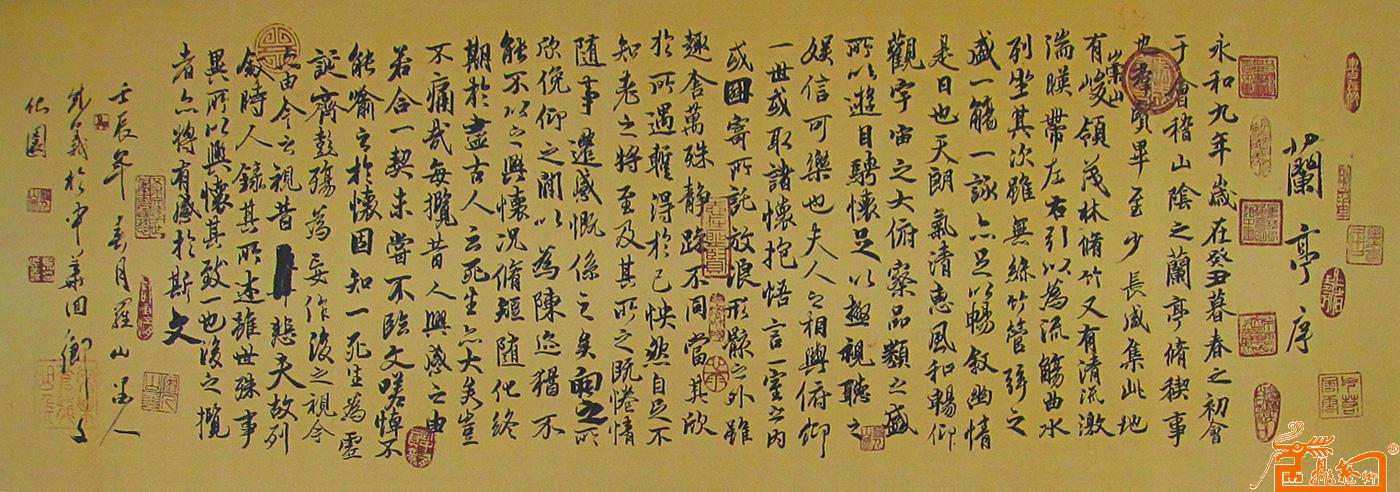 蘭亭序
永和九年歲在癸丑暮春之初會
于會稽山陰之蘭亭脩稧事
也羣賢畢至少長咸集此地
有崇山峻領茂林脩竹又有清流激
湍暎帶左右引以為流觴曲水
列坐其次雖無絲竹管弦之
盛一觴一詠亦足以暢敘幽情
是日也天朗氣清惠風和暢仰
觀宇宙之大俯察品類之盛
所以遊目騁懷足以極視聽之
娛信可樂也夫人之相與俯仰
一世或取諸懷抱悟言一室之內
或因寄所託放浪形骸之外雖
趣舍萬殊静躁不同當其欣
於所遇暫得於己怏然自足不
知老之將至及其所之既惓情
隨事遷感慨係之矣向之所
欣俛仰之間以為陳迹猶不
能不以之興懷況脩短隨化終
期於盡古人云死生亦大矣豈
不痛哉每攬昔人興感之由
若合一契未嘗不臨文嗟悼不
能喻之於懷固知一死生為虛
誕齊彭殤為妄作後之視今
亦由今之視昔悲夫故列
敘時人錄其所述雖世殊事
異所以興懷其致一也後之攬
者亦將有感於斯文
壬辰年春月羅山人
先義於中華